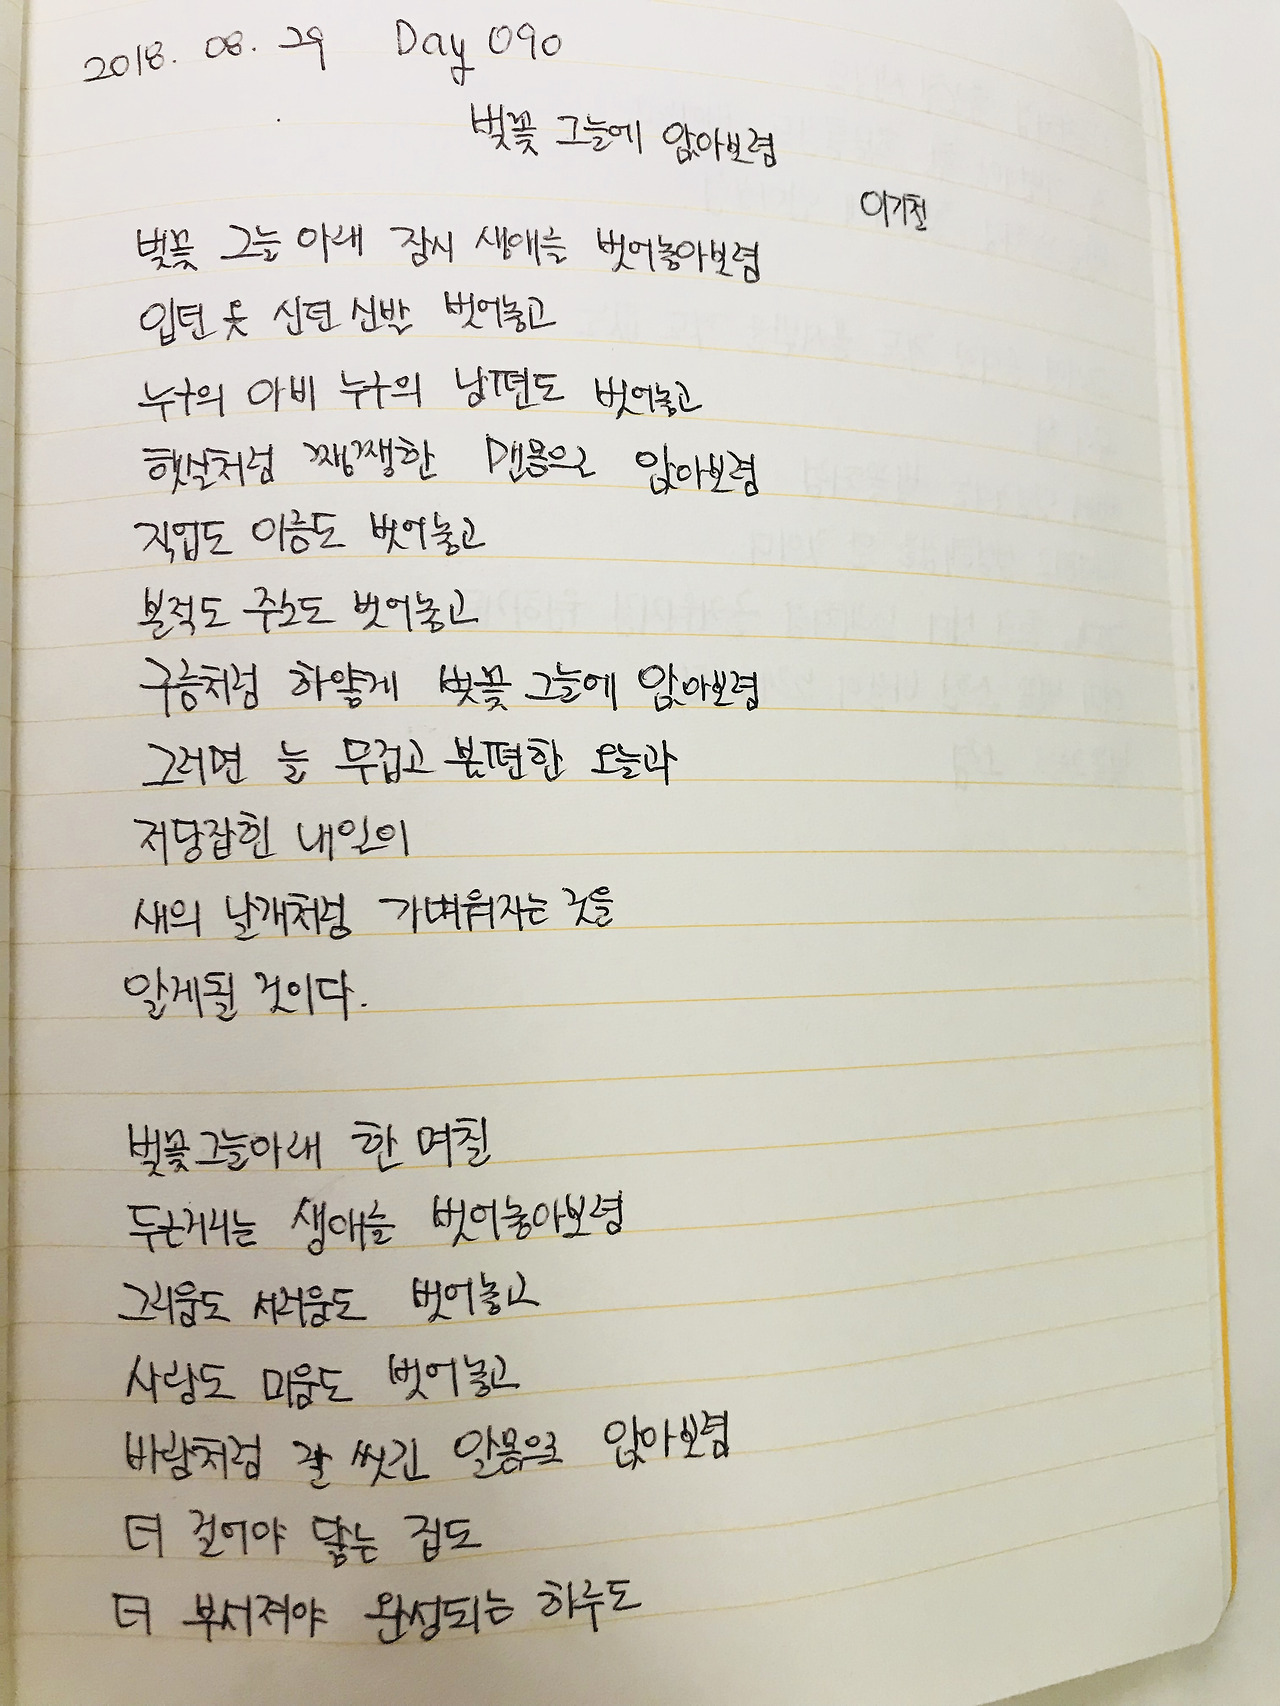 2018. 08. 29 Day 090
벚꽃 그늘에 앉아보렴
이기철
벚꽃 그늘 아래 잠시 생애를 벗어놓아보렴
입던 옷 신던 신발 벗어놓고
누구의 아비 누구의 남편도 벗어놓고
햇살처럼 쨍쨍한 맨몸으로 앉아보렴
직업도 이름도 벗어놓고
본적도 주소도 벗어놓고
구름처럼 하얗게 벚꽃 그늘에 앉아보렴
그러면 늘 무겁고 불편한 오늘과
저당잡힌 내일이
새의 날개처럼 가벼워지는 것을
알게될 것이다.
벚꽃 그늘 아래 한 며칠
두근거리는 생애를 벗어놓아보렴
그리움도 서러움도 벗어놓고
사랑도 미움도 벗어놓고
바람처럼 잘 씻긴 알몸으로 앉아보렴
더 걸어야 닿는 집도
더 부서져야 완성되는 하루도